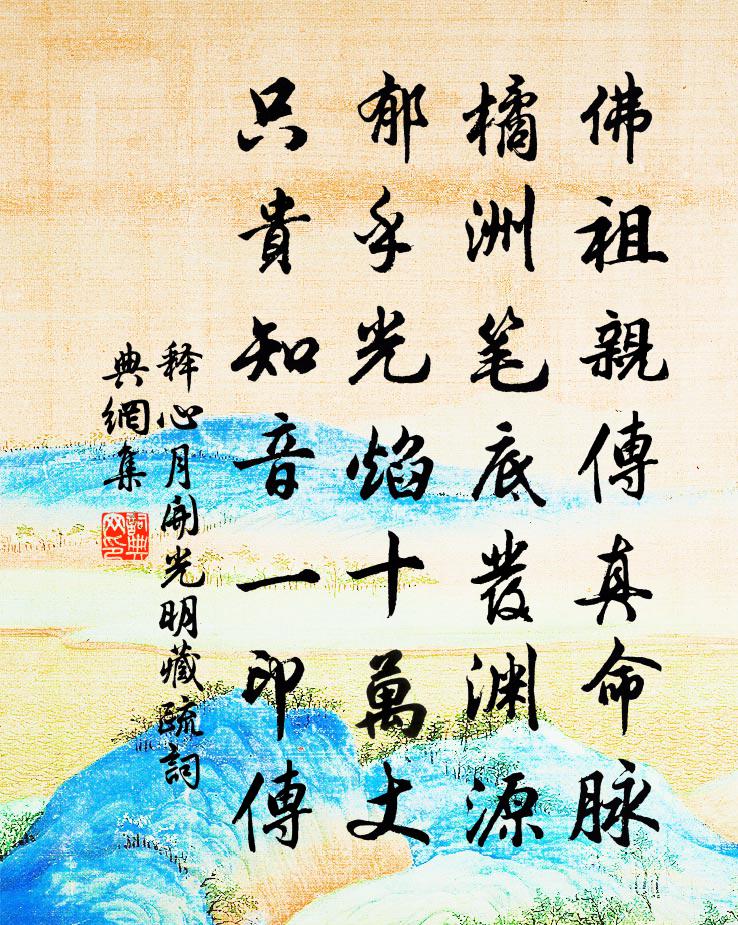 佛祖親傳真命脉
橘洲笔底發渊源
郁乎光焰十萬丈
只貴知音一印傳
释心月開光明藏疏詞
典網集
詞典網印